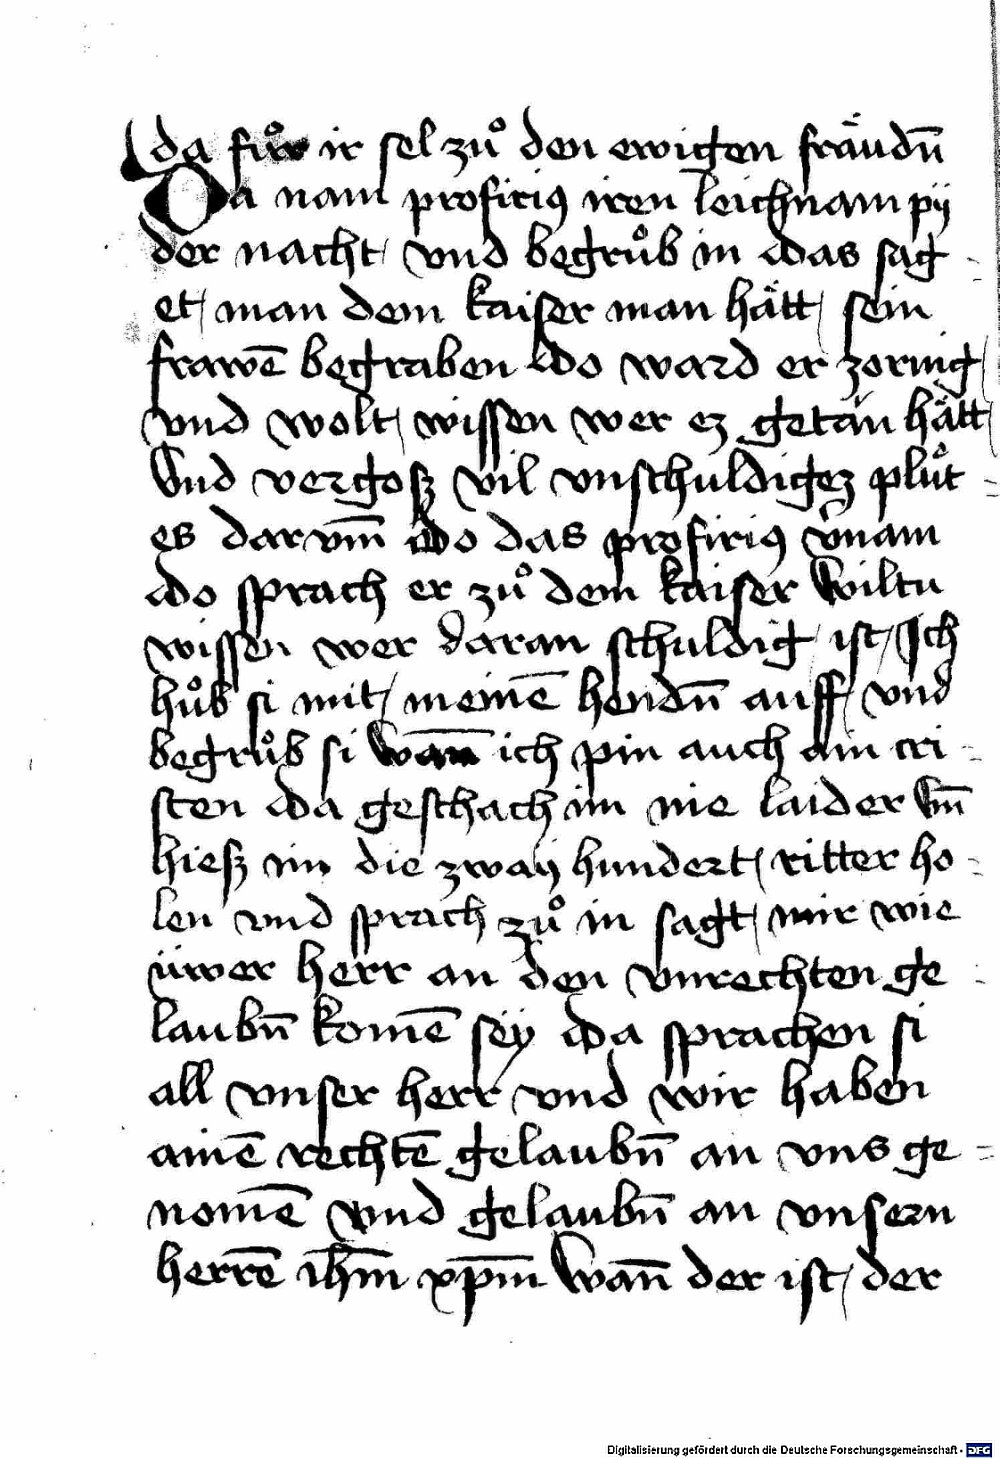 da fuͦr ir sel zuͦ den ewigen fraͤudn̄
Da nam profirius iren leichnam py
der nacht vnd begruͦb in do das sag
et man dem kaiser man haͤtt sein
frawē begraben do ward er zornig
vnd wolt wissen wer ez getan haͤtt
Vnd vergosz vil vnschuldigez pluͦt
es darvm̄ do das profirius v̓nam
do sprach er zuͦ dem kaiser Wiltu
wissen wer daran schuldig ist Ich
huͦb si mit meinē hendn̄ auff vnd
begruͦb si wan̄ ich pin auch ain cri
sten da geschach im nie laider Vn̄
hiesz im die zway hundert ritter ho
len vnd sprach zuͦ in sagt mir wie
üwer herr an den vnrechten ge
laubn̄ komē sëy da sprachen si
all vnser herr vnd wir haben
ainē rechtē gelaubn̄ an vns ge
nomē vnd gelaubn̄ an vnsern
herrē ihm̄ xpm̄ Wan̄ der ist der
Digitalisierung gefördert durch die Deutsche Forschungsgemeinschaft - DFG